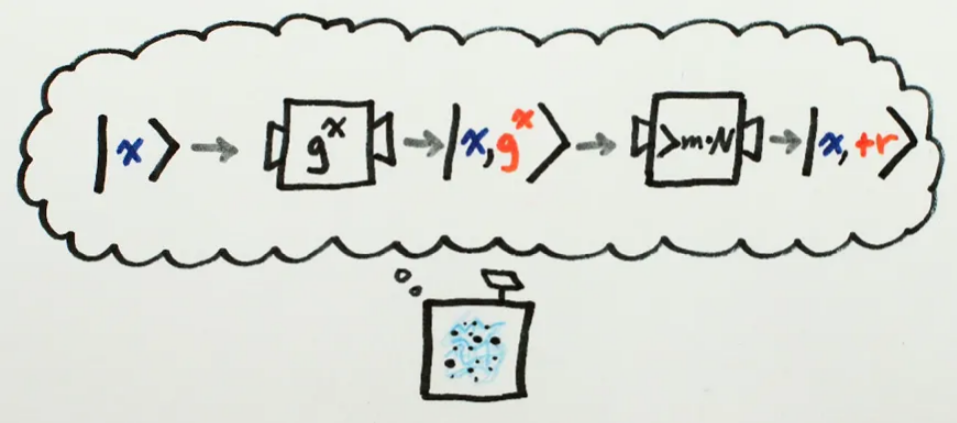 |x⟩ → gˣ → |x, gˣ⟩ → >m·N → |x, +r⟩